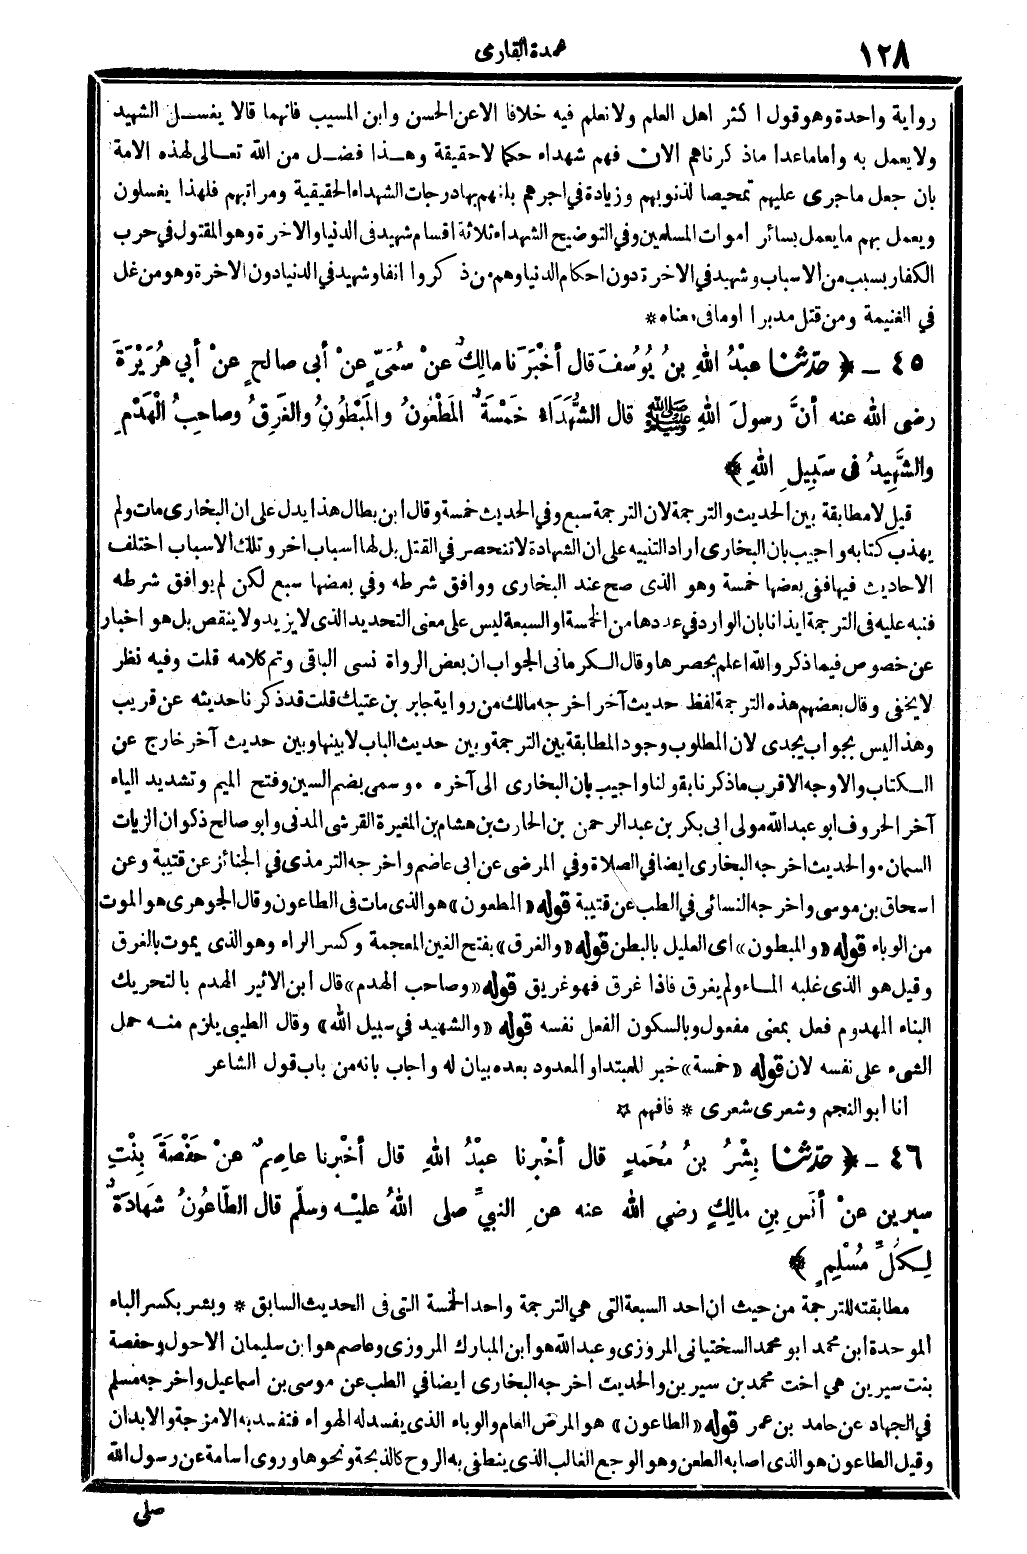 ١٢٨
عمدة القارى
رواية واحدة وهو قول اكثر اهل العلم ولا نعلم فيه خلافا الا عن الحسن وابن المسيب فانهما قالا يغسل الشهيد
ولا يعمل به وأما ما عدا ماذكرناهم الآن فهم شهداء حكما لا حقيقة وهذا فضل من الله تعالى لهذه الامة
بان جعل ماجرى عليهم تمحيصا لذنوبهم وزيادة في اجرهم بلغهم بها درجات الشهداء الحقيقية ومراتبهم فلهذا يغسلون
ويعمل بهم ما يعمل بسائر أموات المسلمين وفي التوضيح الشهداء ثلاثة اقسام شهيد فى الدنيا والآخرة وهو المقتول في حرب
الكفار بسبب من الاسباب وشهيد في الآخرة دون احكام الدنيا وهم من ذكروا انفا وشهيد في الدنيا دون الآخرة وهو من غل
في الغنيمة ومن قتل مدبرا أو ما فى معناه *
٤٥ - ﴿ حدثنا عبْدُ اللهِ بنُ يُوسُفَ قال أخْبَرَنا مالِكٌ عنْ سُمَيٍّ عنْ أبى صالحٍ عنْ أبي هُرَيْرَةَ
رضى الله عنه أنَّ رسولَ اللهِ ﷺ قال الشُّهَدَاءُ خَمْسَةٌ المَطْعُونُ والمَبْطُونُ والغَرِقُ وصاحِبُ الْهَدْمِ
والشَّهِيدُ فى سَبِيلِ اللهِ ﴾
قيل لا مطابقة بين الحديث والترجمة لان الترجمة سبع وفي الحديث خمسة وقال ابن بطال هذا يدل على ان البخارى مات ولم
يهذب كتابه واجيب بان البخارى اراد التنبيه على ان الشهادة لا تنحصر في القتل بل لها أسباب اخر وتلك الاسباب اختلف
الاحاديث فيها ففى بعضها خمسة وهو الذى صح عند البخارى ووافق شرطه وفي بعضها سبع لكن لم يوافق شرطه
فنبه عليه فى الترجمة ايذانا بان الوارد في عددها من الخمسة او السبعة ليس على معنى التحديد الذى لا يزيد ولا ينقص بل هو اخبار
عن خصوص فيما ذكر والله اعلم بحصرها وقال الكرمانى الجواب ان بعض الرواة نسى الباقى وتم كلامه قلت وفيه نظر
لا يخفى وقال بعضهم هذه الترجمة لفظ حديث آخر اخرجه مالك من رواية جابر بن عتيك قلت قد ذكرنا حديثه عن قريب
وهذا ليس بجواب يجدى لان المطلوب وجود المطابقة بين الترجمة وبين حديث الباب لا بينها وبين حديث آخر خارج عن
الكتاب والاوجه الاقرب ما ذكرنا بقولنا واجيب بان البخارى الى آخره . وسمى بضم السين وفتح الميم وتشديد الياء
آخر الحروف ابو عبدالله مولى ابى بكر بن عبدالرحمن بن الحارث بن هشام بن المغيرة القرشى المدنى وابو صالح ذكوان الزيات
السمان . والحديث اخرجه البخارى ايضا في الصلاة وفي المرضى عن ابى عاصم واخرجه الترمذى في الجنائز عن قتيبة وعن
اسحاق بن موسى واخرجه النسائى في الطب عن قتيبة قوله «المطعون» هو الذى مات فى الطاعون وقال الجوهرى هو الموت
من الوباء قوله «والمبطون» اى العليل بالبطن قوله «والغرق» بفتح الغين المعجمة وكسر الراء وهو الذى يموت بالغرق
وقيل هو الذى غلبه الماء ولم يغرق فاذا غرق فهو غريق قوله «وصاحب الهدم» قال ابن الاثير الهدم بالتحريك
البناء المهدوم فعل بمعنى مفعول وبالسكون الفعل نفسه قوله «والشهيد في سبيل الله» وقال الطيبى يلزم منه حمل
الشىء على نفسه لان قوله «خمسة» خبر للمبتدا والمعدود بعده بيان له واجاب بانه من باب قول الشاعر
أنا أبو النجم وشعرى شعرى * فافهم ☆
٤٦ - ﴿ حدثنا بِشْرُ بنُ مُحَمَّدٍ قال أخْبرنا عبْدُ اللهِ قال أخْبرنا عاصِمٌ عنْ حَفْصَةَ بِنْتِ
سيرين عنْ أنَسِ بنِ مالِكٍ رضي الله عنه عنِ النبيِّ صلى اللهُ عليْه وسلّم قال الطّاعُونُ شَهادَةٌ
لِكُلِّ مُسْلِمٍ ﴾
مطابقته للترجمة من حيث ان احد السبعة التى هي الترجمة واحد الخمسة التى فى الحديث السابق * وبشر بكسر الباء
الموحدة ابن محمد ابو محمد السختيانى المروزى وعبدالله هو ابن المبارك المروزى وعاصم هو ابن سليمان الاحول وحفصة
بنت سيرين هي اخت محمد بن سيرين والحديث اخرجه البخارى ايضا في الطب عن موسى بن اسماعيل واخرجه مسلم
في الجهاد عن حامد بن عمر قوله «الطاعون» هو المرض العام والوباء الذى يفسد له الهواء فتفسد به الامزجة والابدان
وقيل الطاعون هو الذى اصابه الطعن وهو الوجع الغالب الذى ينطفى به الروح كالذبحة ونحوها وروى اسامة عن رسول الله
صلى